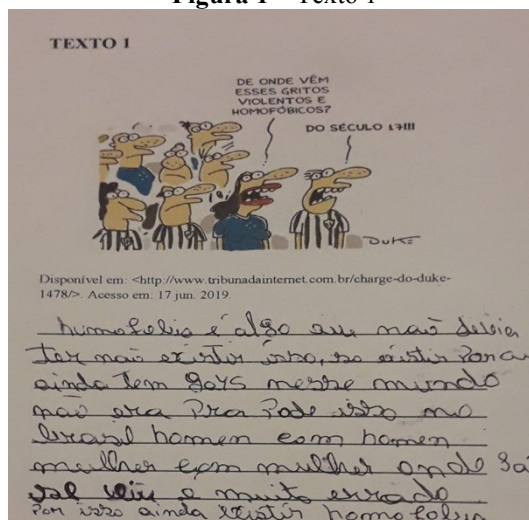 Figura 1 – Texto 1
TEXTO I
DE ONDE VÊM
ESSES GRITOS
VIOLENTOS E
HOMOFÓBICOS?
DO SÉCULO 17!!!
DUKE
Disponível em: <http://www.tribunadainternet.com.br/charge-do-duke-
1478/>. Acesso em: 17 jun. 2019.
humofobia é algo que não devia
ter não existir isso, so existir
ainda tem gays nesse mundo
não era Pra Pode isso no
brasil homen com homen
mulher com mulher onde
e muito errado
Por isso ainda existir homofobia